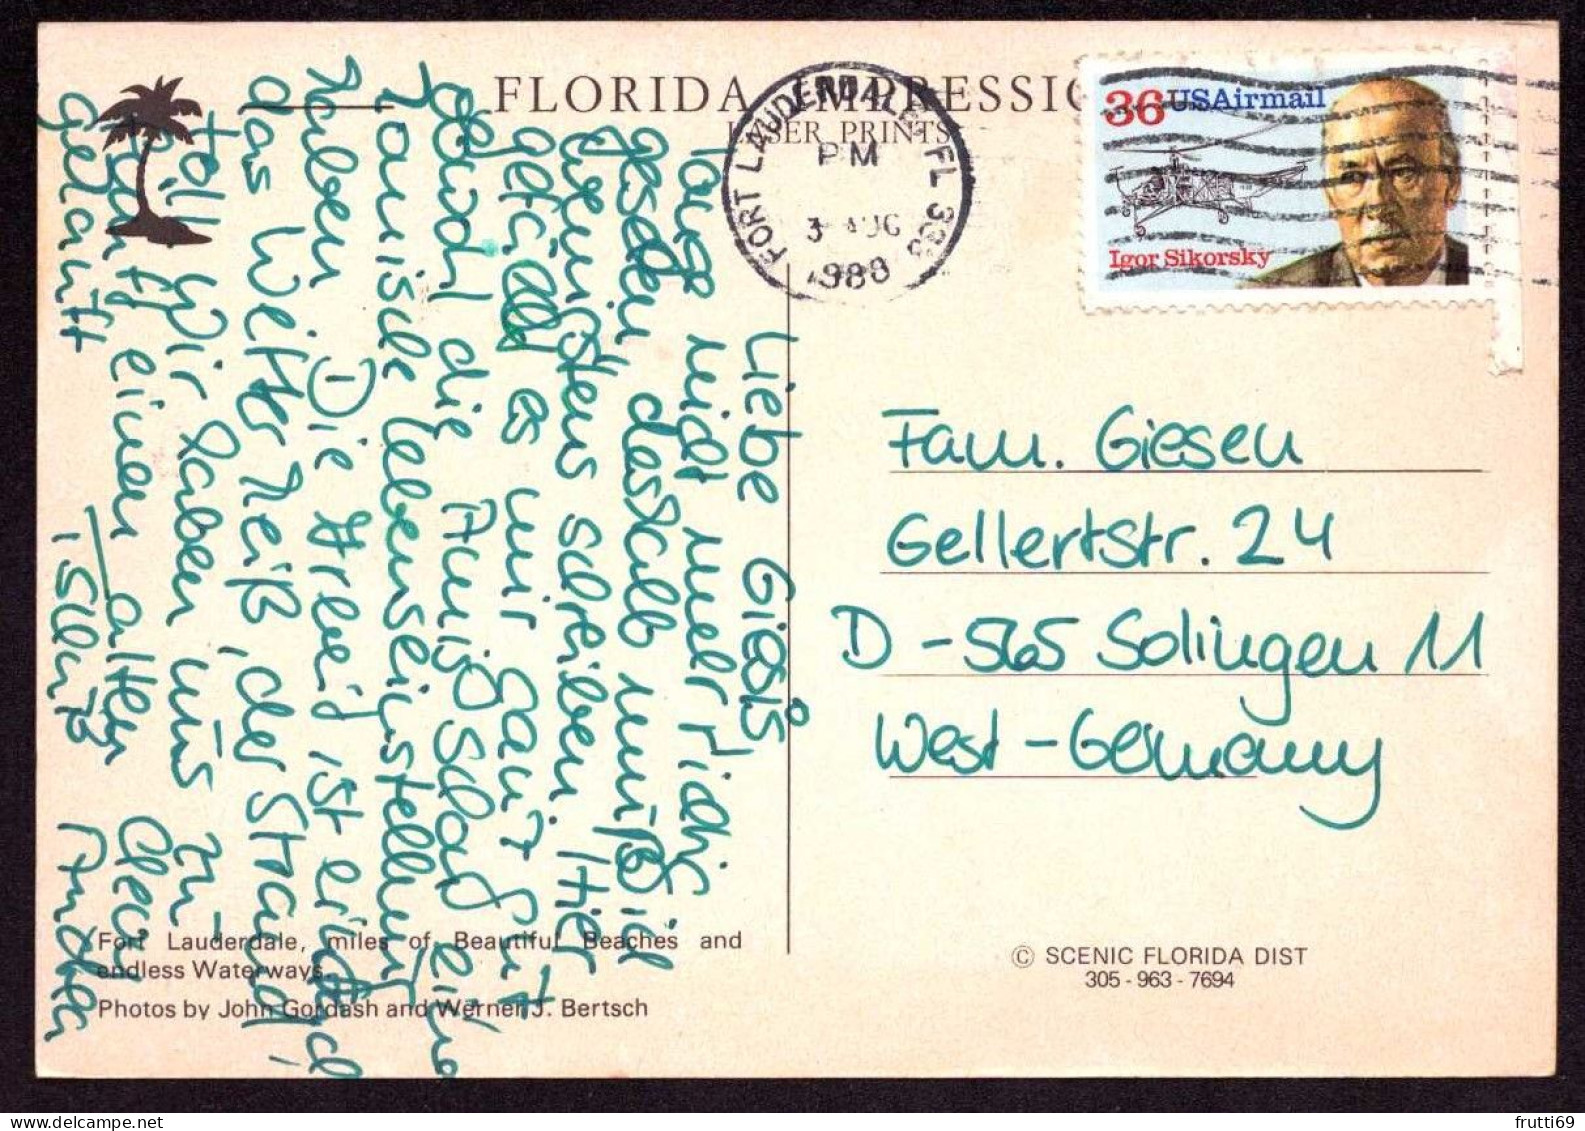 FLORIDA IMPRESSIO
LASER PRINTS
FORT LAUDERDALE, FL 333
PM
3 AUG
1988
36 USAirmail
Igor Sikorsky
Liebe Giesis
lange nicht mehr
gesehen, deshalb muß ich
wenigstens schreiben. Hier
gefällt es mir ganz gut
obwohl die eine
Lebenseinstellung
haben. Die Arbeit ist
das Wetter heiß, der Strand
toll. Wir haben uns zu
einen alten
gekauft
Fam. Giesen
Gellertstr. 24
D-565 Solingen 11
West-Germany
Fort Lauderdale, miles of Beautiful Beaches and
endless Waterways.
Photos by John Gordash and Werner J. Bertsch
© SCENIC FLORIDA DIST
305-963-7694
frutti69